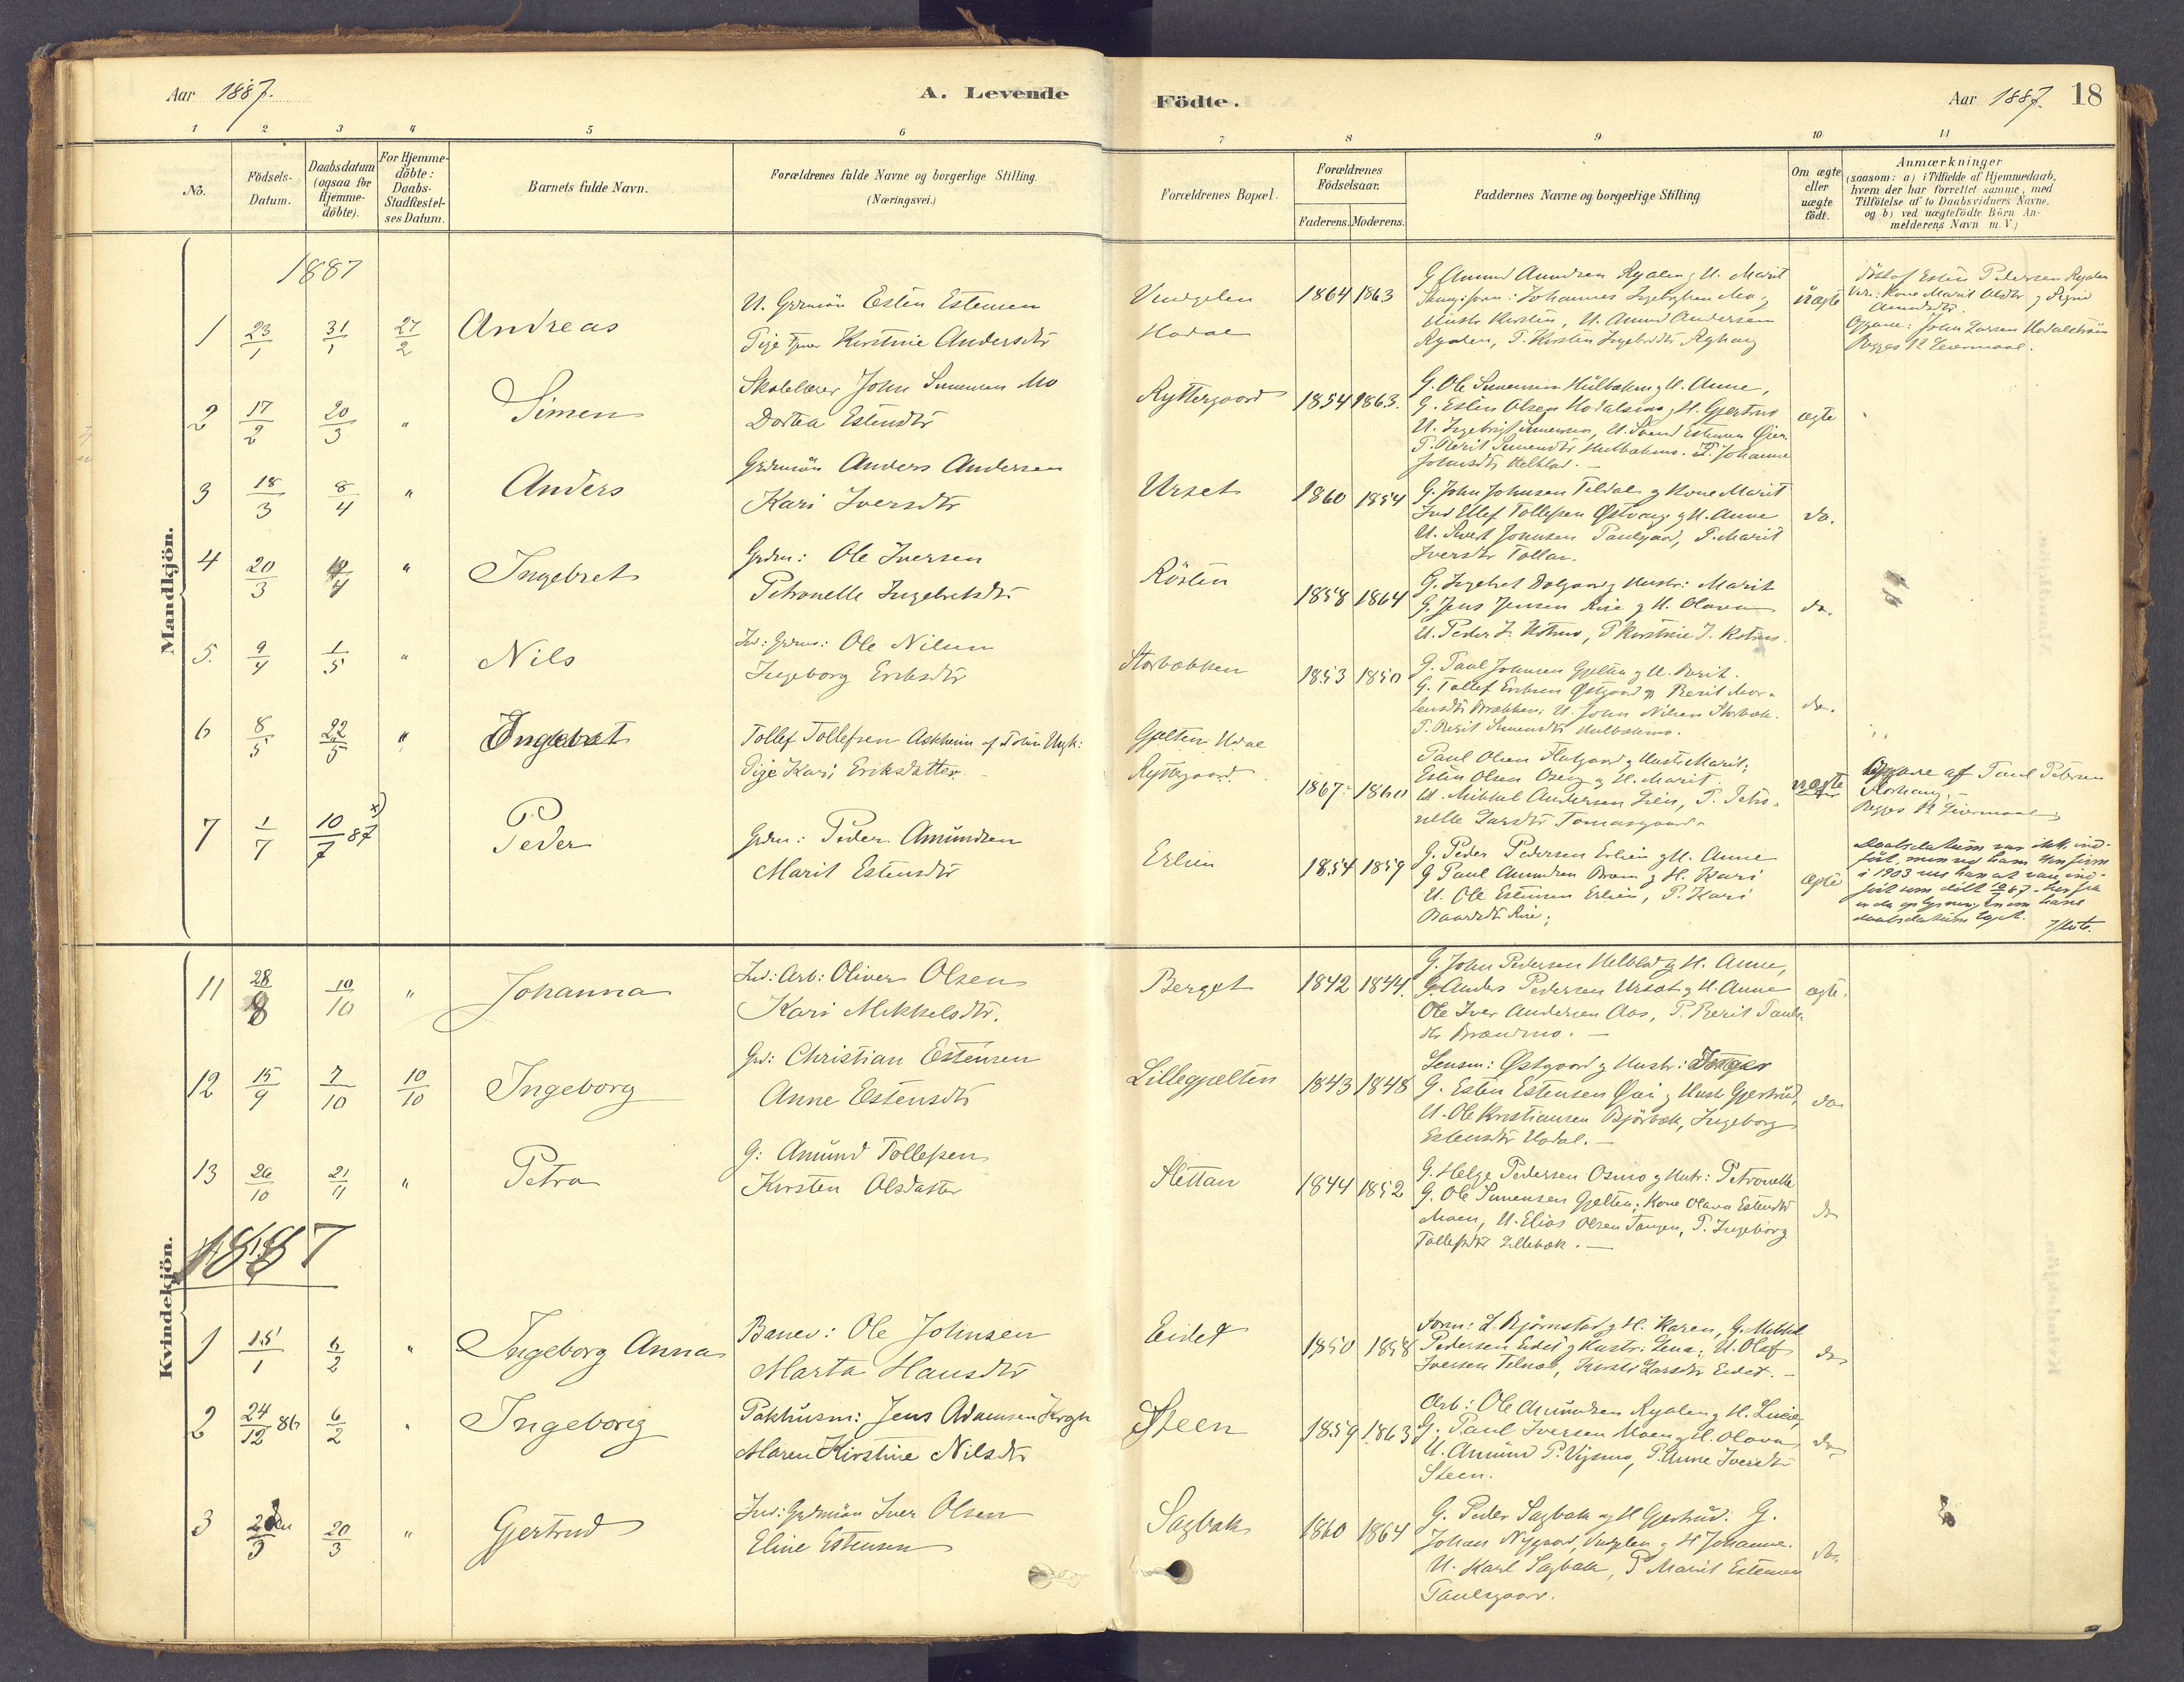 Aar 1887.
A. Levende
Födte.
Aar 1887. 18
1 2 3 4 5 6 7 8 9 10 11
No.
Födsels-
Datum.
Daabsdatum
(ogsaa for
Hjemme-
döbte).
For Hjemme-
döbte:
Daabs-
Stadfæstel-
ses Datum.
Barnets fulde Navn.
Forældrenes fulde Navne og borgerlige Stilling.
(Næringsvei.)
Forældrenes Bopæl.
Forældrenes
Födselsaar.
Faderens. Moderens.
Faddernes Navne og borgerlige Stilling
Om ægte
eller
uægte
födt.
Anmærkninger
(saasom: a) i Tilfælde af Hjemmedaab,
hvem der har forrettet samme, med
Tilföielse af to Daabsvidners Navne.
og b) ved uægtefödte Börn An-
melderens Navn m. V.)
Mandkjön.
1887
1 23/1 31/1 27/2 Andreas
U. Grdmön Esten Estensen
Pige Kirstine Andersdtr
Vingelen
Hodal
1864 1863
G Amund Amundsen Ryalen g H. Marit
Johannes Ingebrigtsen Mo
Hustr Kirsten, U. Amund Andersen
Ryalen, P. Kirsten Ingebrdtr Ryhaug
uægte
Esten Pedersen Ryalen
Kone Marit
Amundsdtr.
Opgave: John Larsen
Begges 1ste Leiermaal.
2 17/2 20/3 " Simen
Skolelærer John Simensen Mo
Dortea Estensdtr
Ryttergaard
1854 1863.
G. Ole Simensen Hulbækmo g H. Anne,
G. Esten Olsen g H. Gjertrud
U. Ingebrigt Simensen, U. Svend Estensen Øien
P. Berit Simensdtr Hulbækmo. P. Johanne
Johnsdtr Helblad. —
ægte
3 18/3 8/4 " Anders
Grdmön Anders Andersen
Kari Iversdtr
Urset
1860 1854
G. John Johnsen Teldal g Kone Marit
Ind Ellef Tollefsen Østvang g H. Anne
U. Johnsen Paulsgaard, P. Marit
Iversdtr Tollan.
do.
4 20/3 /4 " Ingebret
Grdm: Ole Iversen
Petronelle Ingebretsdtr
Rösten
1858 1864
G. Ingebret Dalgaard g Hustr: Marit
G. Jens Jensen g H. Olava
U. Peder, P Kirstine J.
do.
5. 9/4 1/5 " Nils
Ind: Grdms: Ole Nilsen
Ingeborg Eriksdtr
Storbækken
1853 1850
G. Paul Johnsen Gjelten g H. Berit.
G. Tollef Eriksen Østgaard g Berit Mor-
tensdtr Brækken; U. John Nilsen Storbæk.
P. Berit Simensdtr Hulbækmo.
do.
6 8/5 22/5 " Ingebret
Tollef Tollefsen Askheim af Tolen Ungk:
Pige Kari Eriksdatter.
Gjelten Hodal
Ryttergaard
1867 1860
Paul Olsen Flatgaard g Hustr Marit;
Esten Olsen g H. Marit.
U. Mikkel Andersen Lien, P. Petro-
nelle Larsdtr Tomasgaard.
uægte
Opgave af Paul Petersen
Begges 1ste Leiermaal
7 1/7 10/7 87 x) Peder
Grdm: Peder Amundsen
Marit Estensdtr
Erlien
1854 1859
G. Peder Pedersen Erlien g H. Anne
G Paul Amundsen g H. Kari
U. Ole Estensen Erlien, P. Kari
Baardsdtr;
ægte
Daabsdatum var ikke ind-
fört, men ved hans Konfirm
i 1903 sees han at være ind-
fört som döbt 10/7 87 - herfra
er da oplysning om hans
daabsdatum taget.
Kvindekjön.
11 28/8 10/10 " Johanna
Ind: Arb: Oliver Olsen
Kari Mikkelsdtr.
Berget
1842 1844.
G. John Pedersen Helblad g H. Anne,
G Anders Pedersen Urset g H. Anne
Ole Iver Andersen Aas, P. Berit Pauls-
dtr Brændmo. —
ægte.
12 15/9 7/10 10/10 Ingeborg
Grd: Christian Estensen
Anne Estensdtr
Lillegjelten
1843 1848
Lensm: Østgaard g Hustr:
G. Esten Estensen Øien g Hustr Gjertrud,
U. Ole Kristiansen Bjørbæk, Ingeborg
Estensdtr Hodal. —
do
13 26/10 21/11 " Petra
G: Amund Tollefsen
Kirsten Olsdatter
Slettan
1844 1852
G. Helge Pedersen Osmo g Hustr: Petronelle
G. Ole Simensen Gjelten; Kone Olava Estensdtr
Moen, U. Elias Olsen Tangen, P. Ingeborg
Tollefsdtr Lillebæk. —
do
1887
1 15/1 6/2 " Ingeborg Anna
Banev: Ole Johnsen
Marta Hansdtr
Eidet
1850 1858
Form: L. Bjørnstad g H. Karen, G. Mikkel
Pedersen Eidet g Hustr: Lena; U. Olaf
Iversen Telnes, Kirsti Larsdtr Eidet. —
do
2 24/12 86 6/2 " Ingeborg
Pakhusm: Jens Adamsen Krogh
Maren Kirstine Nilsdtr
Steen
1859 1863
Arb: Ole Amundsen Ryalen g H. Lucie,
G; Paul Iversen Moen g H. Olava
U. Amund P. Vigsmo, P. Anne Iversdtr
Steen.
do
3 /3 20/3 " Gjertrud
Ind: Grdmön Iver Olsen
Eline Estensen
Sagbak
1860 1864
G. Peder Sagbak og H Gjertrud. G.
Johan Nygaard, Vingelen g H Johanne.
U. Karl Sagbak, P Marit Estensen
Paulsgaard.
do.